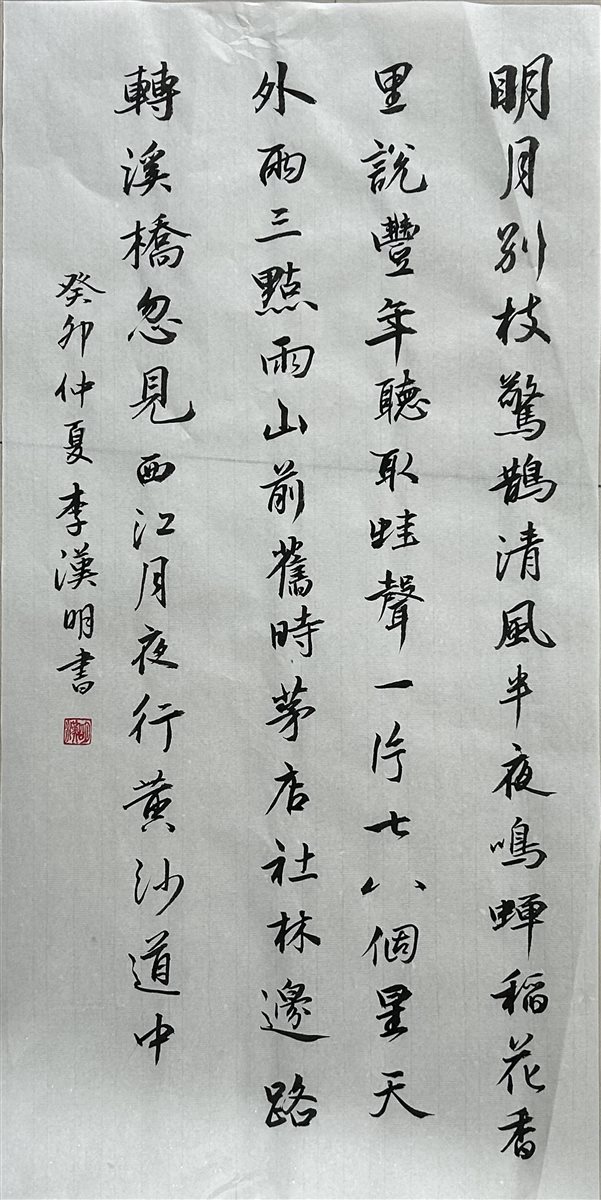 明月別枝驚鵲清風半夜鳴蟬稻花香
里說豐年聽取蛙聲一片七八個星天
外兩三點雨山前舊時茅店社林邊路
轉溪橋忽見西江月夜行黃沙道中
癸卯仲夏李漢明書